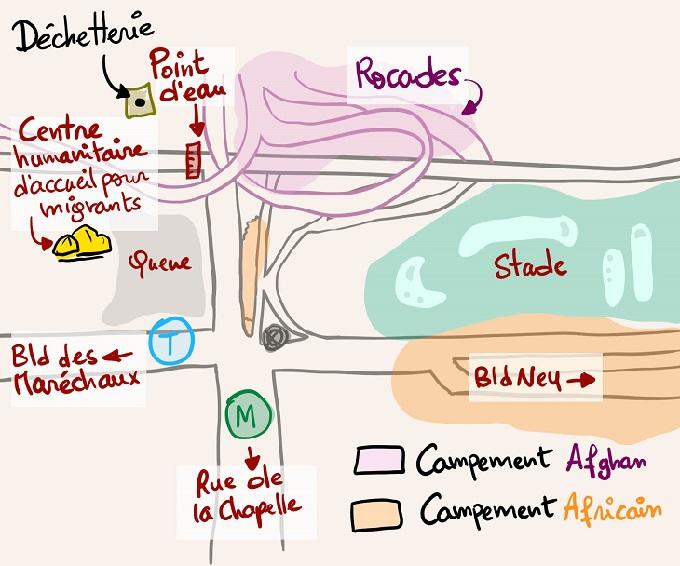 Déchetterie
Point
d'eau
Rocades
Centre
humanitaire
d'accueil pour
migrants
Queue
Stade
T
Bld des
Maréchaux
Bld Ney
M
Rue de
la Chapelle
Campement Afghan
Campement Africain